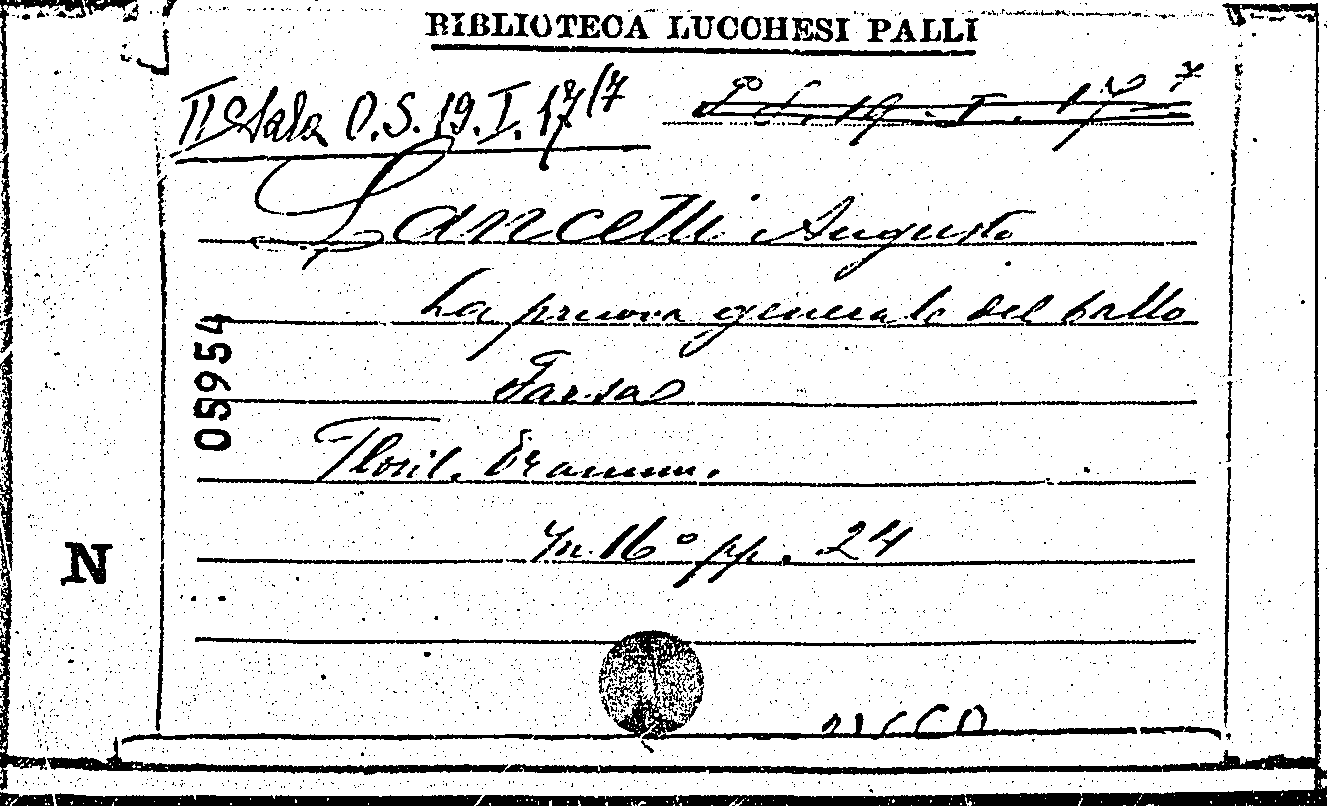 BIBLIOTECA LUCCHESI PALLI
II Sala O.S. 19. I. 17/7
Lancetti Augusto
La pruova generale del ballo
Farsa
Floril. Dramm.
In 16° pp. 24
05954
N